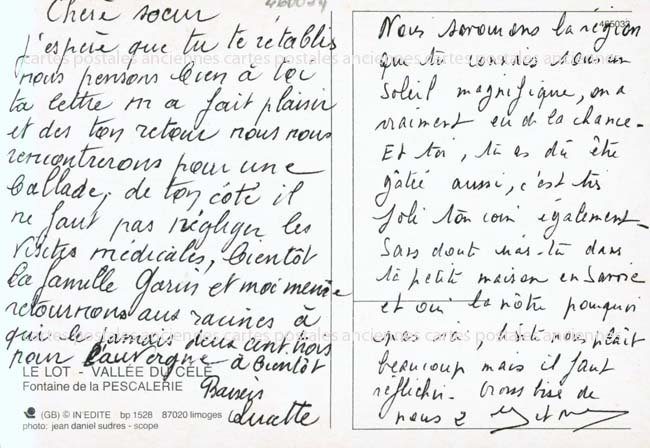 Chère soeur
j'espère que tu te rétablis
nous pensons bien à toi
ta lettre m'a fait plaisir
et dès ton retour nous nous
rencontrerons pour une
ballade, de ton côté il
ne faut pas négliger les
visites médicales, bientôt
la famille Garin et moi même
retournons aux racines à
pour l'auvergne à bientôt
Baisers
LE LOT - VALLÉE DU CÉLÉ
Fontaine de la PESCALERIE
(GB) © IN'EDITE bp 1528 87020 limoges
photo: jean daniel sudres - scope
Nous savourons la région
que tu connais sous un
soleil magnifique, on a
vraiment eu de la chance.
Et toi, tu as dû être
gâtée aussi, c'est très
joli ton coin également.
Sans doute iras-tu dans
ta petite maison en Savoie
et oui la nôtre pourquoi
pas
beaucoup mais il faut
réfléchir. Grosse bise de
nous 2
cartes postales anciennes cartes postales anciennes cartes postales anciennes